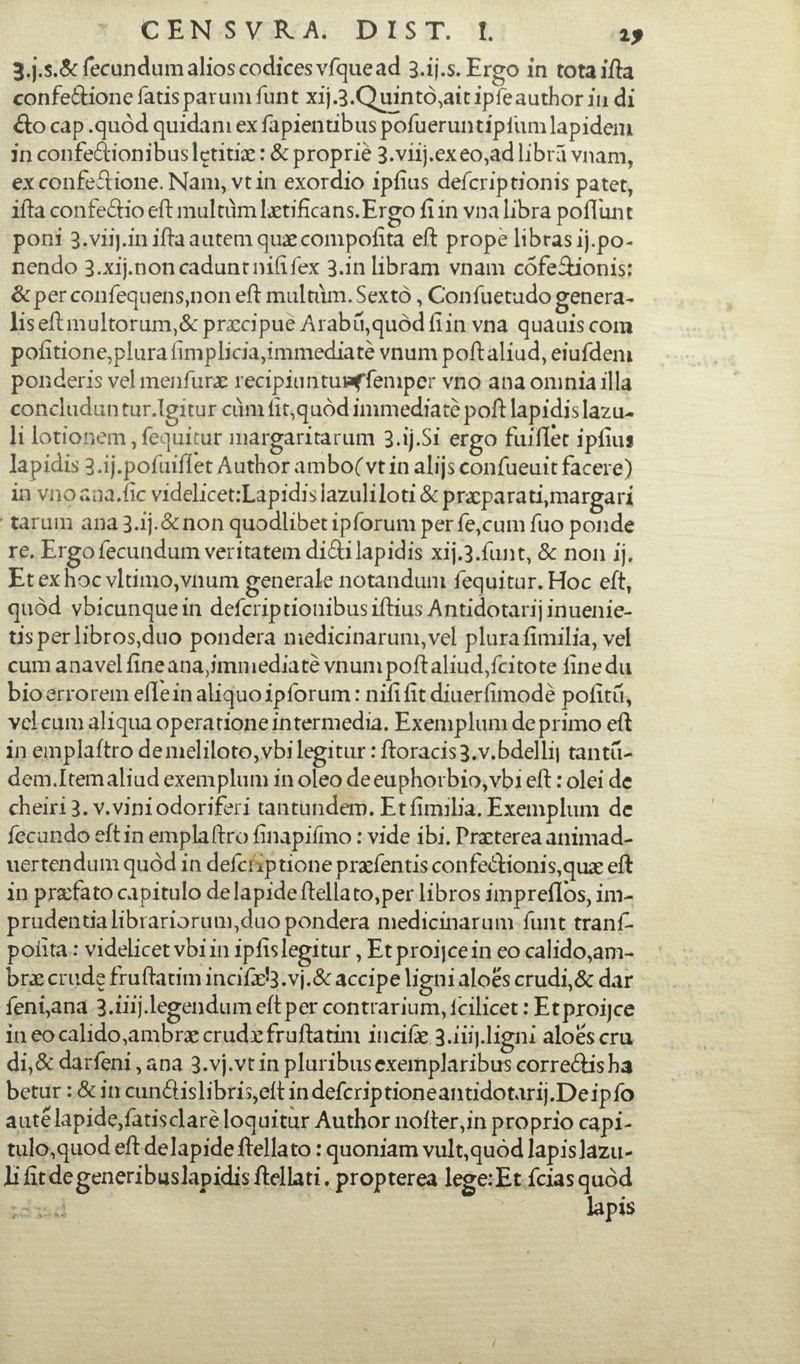 CENSVRA. DIST. I. 29
ʒ.j.s.& ſecundum alios codices vſque ad ʒ.ij.s. Ergo in tota iſta
confectione ſatis parum ſunt xij.ʒ.Quintò,ait ipſe author in di
cto cap .quòd quidam ex ſapientibus poſuerunt ipſum lapidem
in confectionibus lętitiæ: & propriè ʒ.viij.ex eo,ad librā vnam,
ex confectione. Nam, vt in exordio ipſius deſcriptionis patet,
iſta confectio eſt multùm lætificans.Ergo ſi in vna libra poſſunt
poni ʒ.viij.in iſta autem quæ compoſita eſt propè libras ij.po-
nendo ʒ.xij.non cadunt niſi ſex ʒ.in libram vnam cōfectionis:
& per conſequens,non eſt multùm. Sextò, Conſuetudo genera-
lis eſt multorum,& præcipuè Arabū,quòd ſi in vna quauis com
poſitione,plura ſimplicia,immediatè vnum poſt aliud, eiuſdem
ponderis vel menſuræ recipiuntur ſemper vno ana omnia illa
concluduntur.Igitur cùm ſit,quòd immediatè poſt lapidis lazu-
li lotionem, ſequitur margaritarum ʒ.ij.Si ergo fuiſſet ipſius
lapidis ʒ.ij.poſuiſſet Author ambo(vt in alijs conſueuit facere)
in vno ana.ſic videlicet:Lapidis lazuli loti & præparati,margari
tarum ana ʒ.ij.& non quodlibet ipſorum per ſe,cum ſuo ponde
re. Ergo ſecundum veritatem dicti lapidis xij.ʒ.ſunt, & non ij.
Et ex hoc vltimo,vnum generale notandum ſequitur. Hoc eſt,
quòd vbicunque in deſcriptionibus iſtius Antidotarij inuenie-
tis per libros,duo pondera medicinarum,vel plura ſimilia, vel
cum ana vel ſine ana,immediatè vnum poſt aliud,ſcitote ſine du
bio errorem eſſe in aliquo ipſorum: niſi ſit diuerſimodè poſitū,
vel cum aliqua operatione intermedia. Exemplum de primo eſt
in emplaſtro de meliloto,vbi legitur: ſtoracis ʒ.v.bdellij tantū-
dem.Item aliud exemplum in oleo de euphorbio,vbi eſt: olei de
cheiri ʒ. v.vini odoriferi tantundem. Et ſimilia. Exemplum de
ſecundo eſt in emplaſtro ſinapiſmo: vide ibi. Præterea animad-
uertendum quòd in deſcriptione præſentis confectionis,quæ eſt
in præfato capitulo de lapide ſtellato,per libros impreſſos, im-
prudentia librariorum,duo pondera medicinarum ſunt tranſ-
poſita: videlicet vbi in ipſis legitur, Et proijce in eo calido,am-
bræ crudę fruſtatim inciſæ ʒ.vj.& accipe ligni aloës crudi,& dar
ſeni,ana ʒ.iiij.legendum eſt per contrarium, ſcilicet: Et proijce
in eo calido,ambræ crudæ fruſtatim inciſæ ʒ.iiij.ligni aloës cru
di,& darſeni, ana ʒ.vj.vt in pluribus exemplaribus correctis ha
betur: & in cunctis libris,eſt in deſcriptione antidotarij.De ipſo
autē lapide,ſatis clarè loquitur Author noſter,in proprio capi-
tulo,quod eſt de lapide ſtellato: quoniam vult,quòd lapis lazu-
li ſit de generibus lapidis ſtellati. propterea lege:Et ſcias quòd
lapis